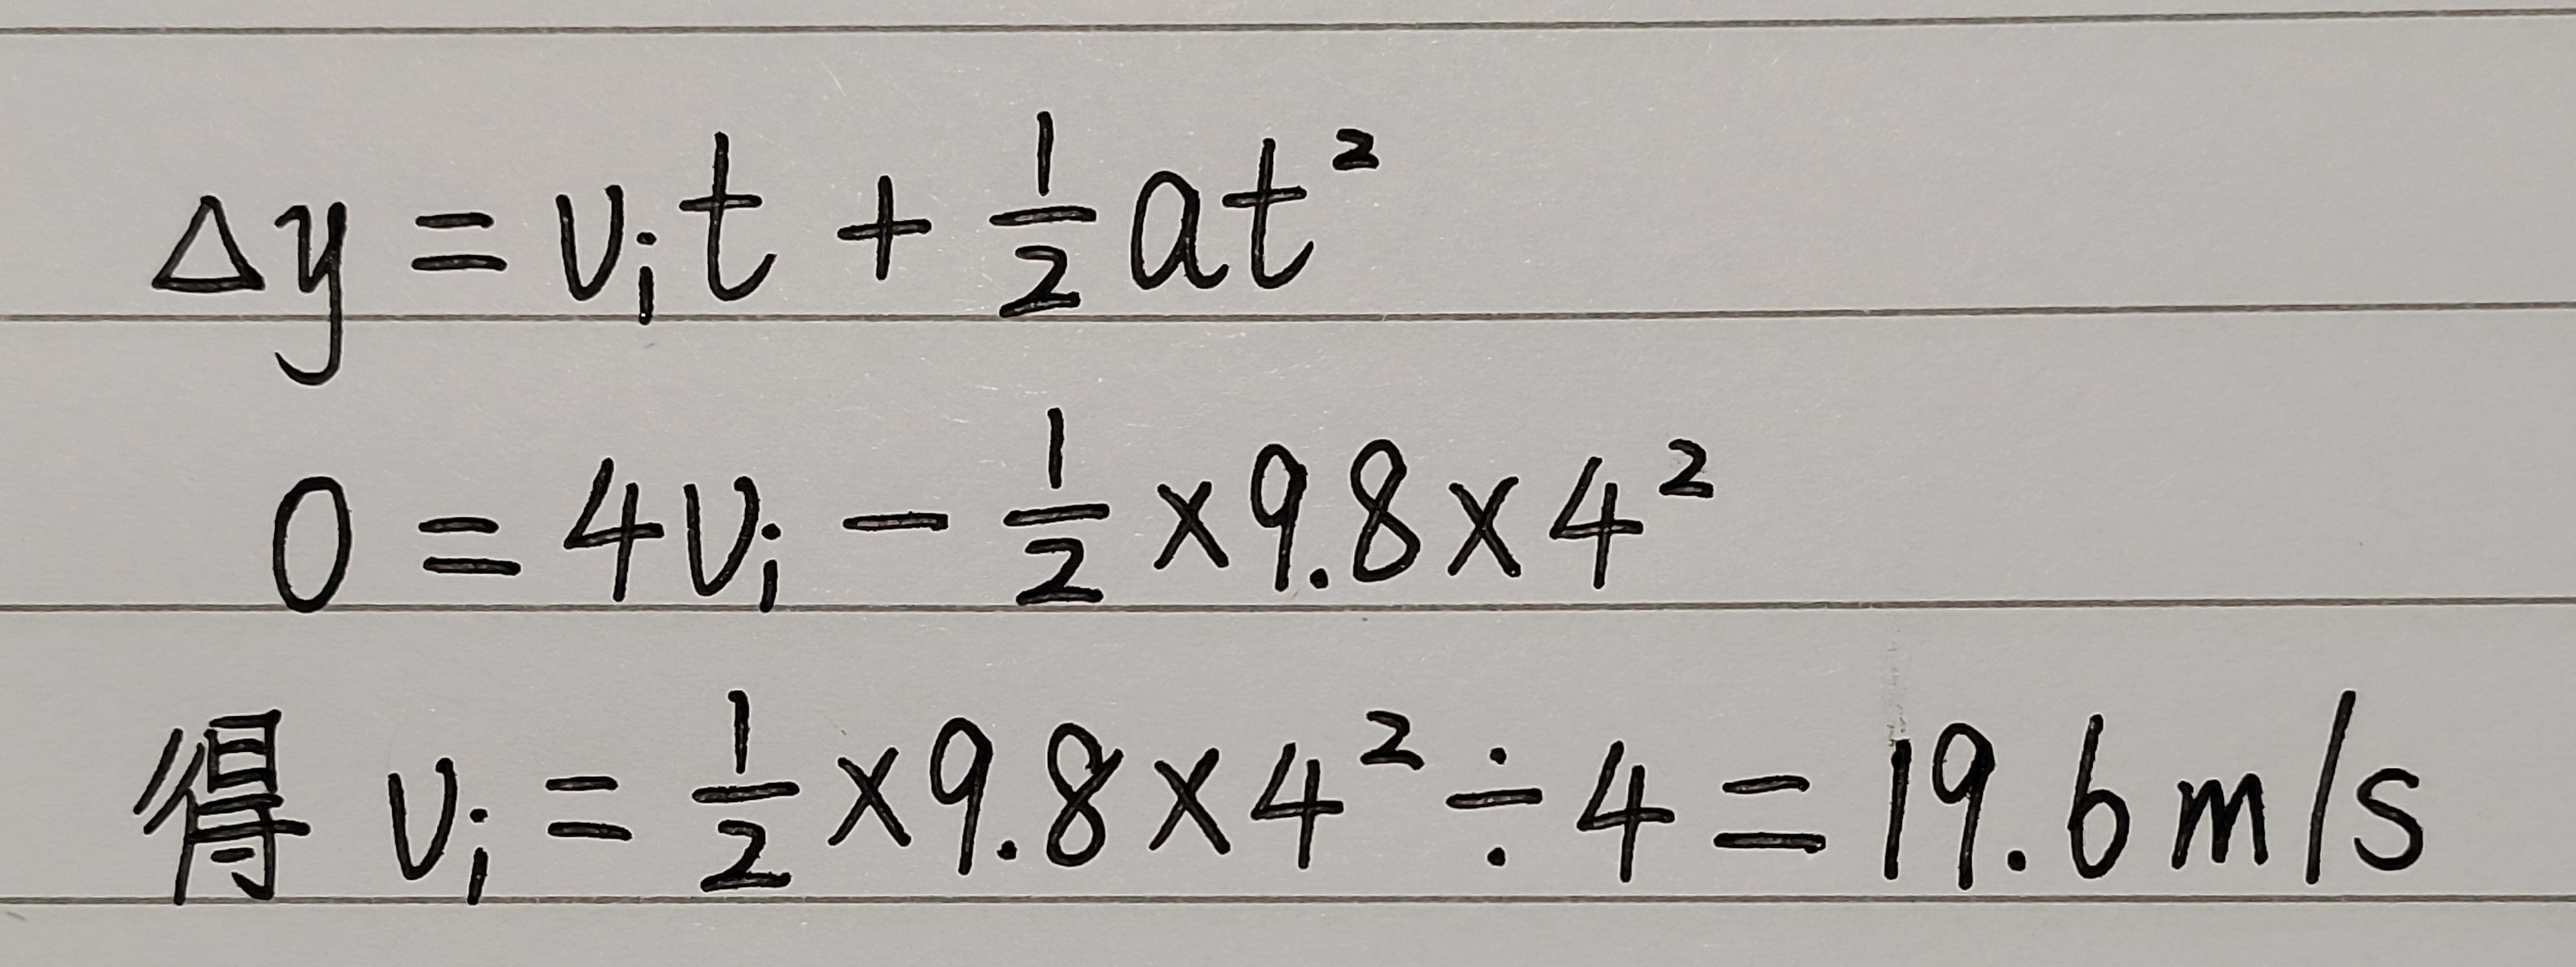 Δy = vᵢt + ½at²
0 = 4vᵢ − ½×9.8×4²
得 vᵢ = ½×9.8×4²÷4 = 19.6 m/s